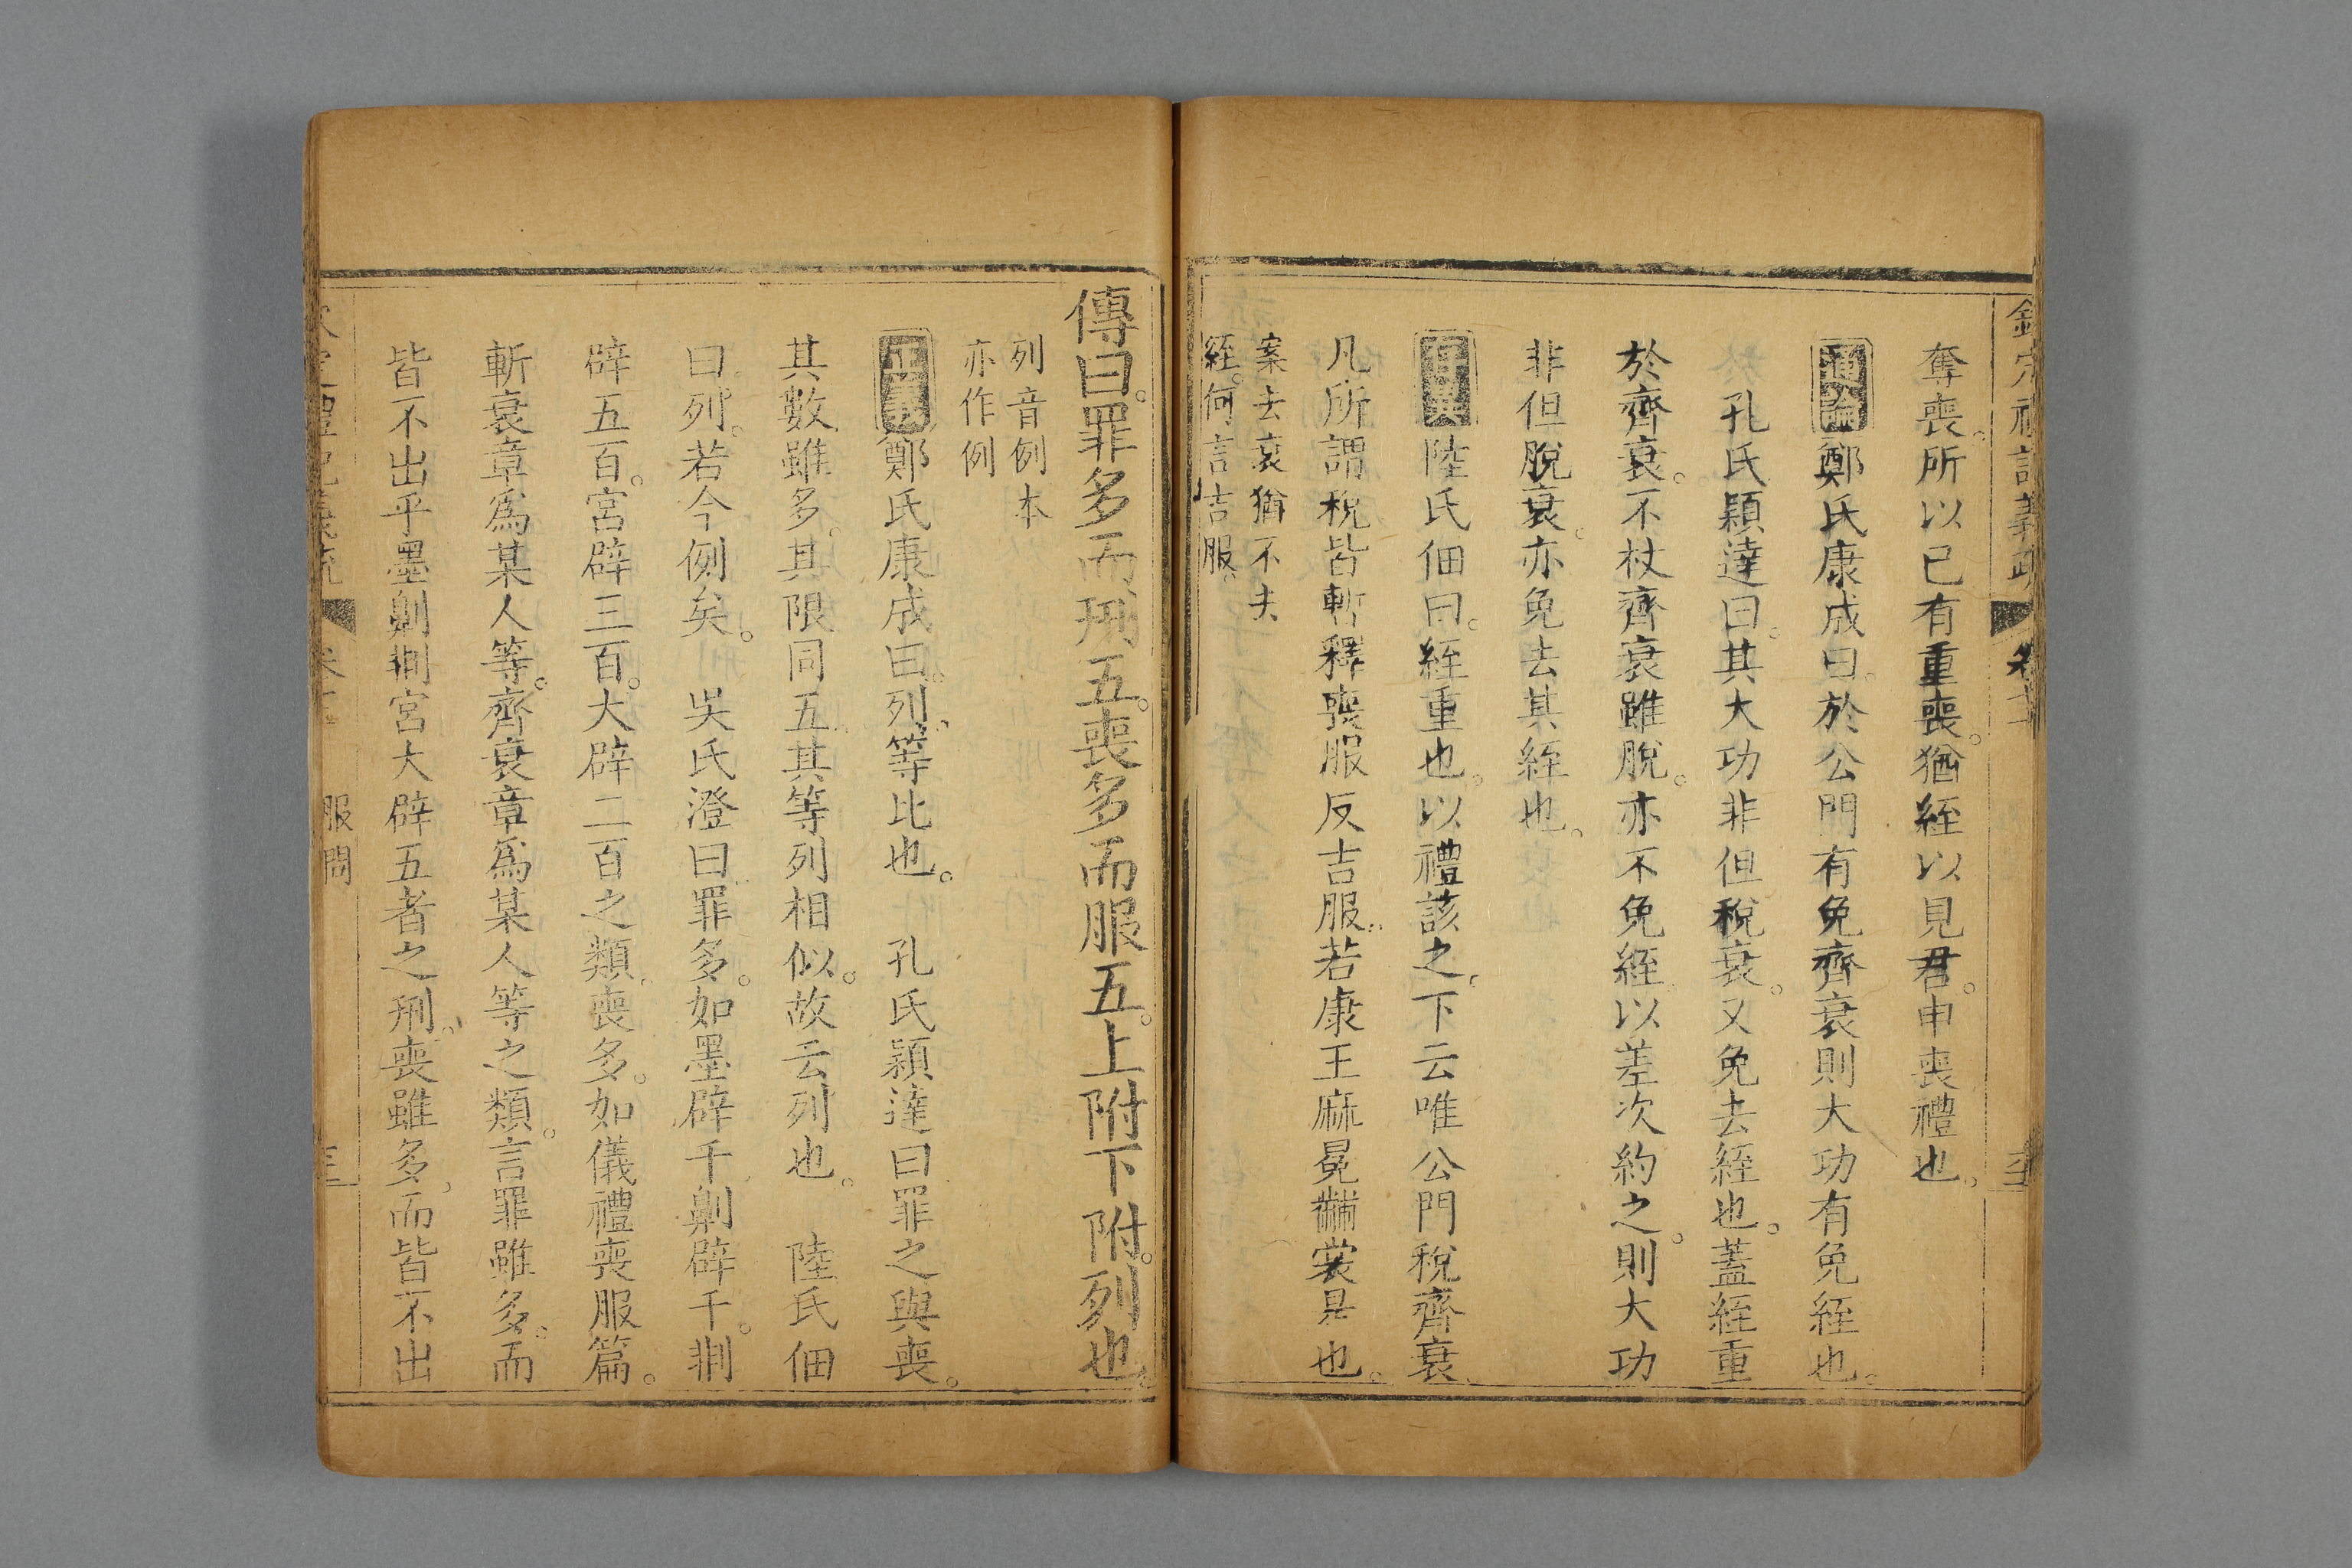 奪喪。所以已有重喪。猶絰以見君。申喪禮也。
通論鄭氏康成曰。於公門有免齊衰。則大功有免絰也。
孔氏穎達曰。其大功非但稅衰。又免去絰也。蓋絰重
於齊衰。不杖齊衰雖脫。亦不免絰。以差次約之。則大功
非但脫衰。亦免去其絰也。
存異陸氏佃曰。絰重也。以禮該之。下云唯公門稅齊衰。
凡所謂稅皆暫釋喪服反吉服。若康王麻冕黼裳是也。
案去衰猶不去
絰。何言吉服。
服問
傳曰。罪多而刑五。喪多而服五。上附下附。列也。
列音例本
亦作例
正義鄭氏康成曰。列。等比也。 孔氏穎達曰罪之與喪。
其數雖多。其限同五。其等列相似。故云列也。 陸氏佃
曰。列。若今例矣。 吳氏澄曰罪多。如墨辟千劓辟千。剕
辟五百。宮辟三百。大辟二百之類。喪多。如儀禮喪服篇。
斬衰章爲某人等。齊衰章爲某人等之類。言罪雖多。而
皆不出乎墨劓剕宮大辟五者之刑。喪雖多。而皆不出